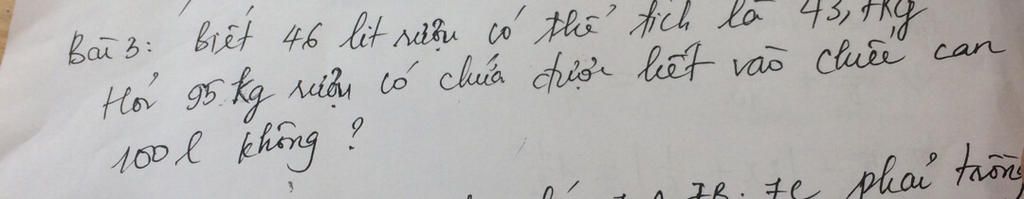 Bài 3: Biết 46 lít rượu có thể tích là 43,7kg
Hỏi 95 kg rượu có chứa được hết vào chiếc can
100 l không?
phải trồng